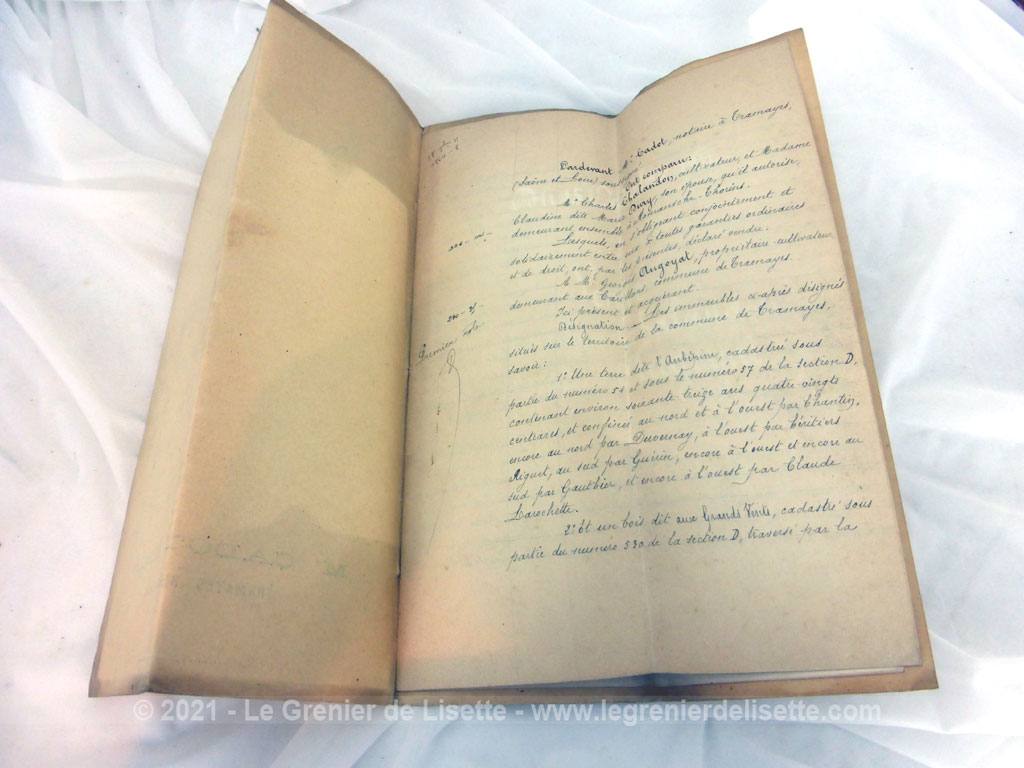 Pardevant Me Cadot, notaire à Tramayes,
(Saône et Loire) soussigné
Ont comparu:
Mr Charles Chalandon, cultivateur, et Madame
Claudine dite Marie Bury, son épouse, qu'il autorise,
demeurant ensemble à Romanèche-Thorins.
Lesquels, en s'obligeant conjointement et
solidairement entre eux à toutes garanties ordinaires
et de droit, ont, par les présentes, déclaré vendre.
A Mr Georges Augoyat, propriétaire-cultivateur
demeurant aux commune de Tramayes.
Ici présent et acquérant.
Désignation._ Les immeubles ci-après désignés
situés sur le territoire de la commune de Tramayes,
savoir:
1° Une terre dite l'Aubépine, cadastré sous
partie du numéro 54 et sous le numéro 57 de la section D,
contenant environ soixante treize ares quatre vingts
centiares, et confinée au nord et à l'ouest par Chantin,
encore au nord par Duvernay, à l'ouest par héritiers
Aiguet, au sud par Guérin, encore à l'ouest et encore au
sud par Gauthier, et encore à l'ouest par Claude
Larochette.
2° Et un bois dit aux Grands Vents, cadastré sous
partie du numéro 530 de la section D, traversé par la
© 2021 - Le Grenier de Lisette - www.legrenierdelisette.com